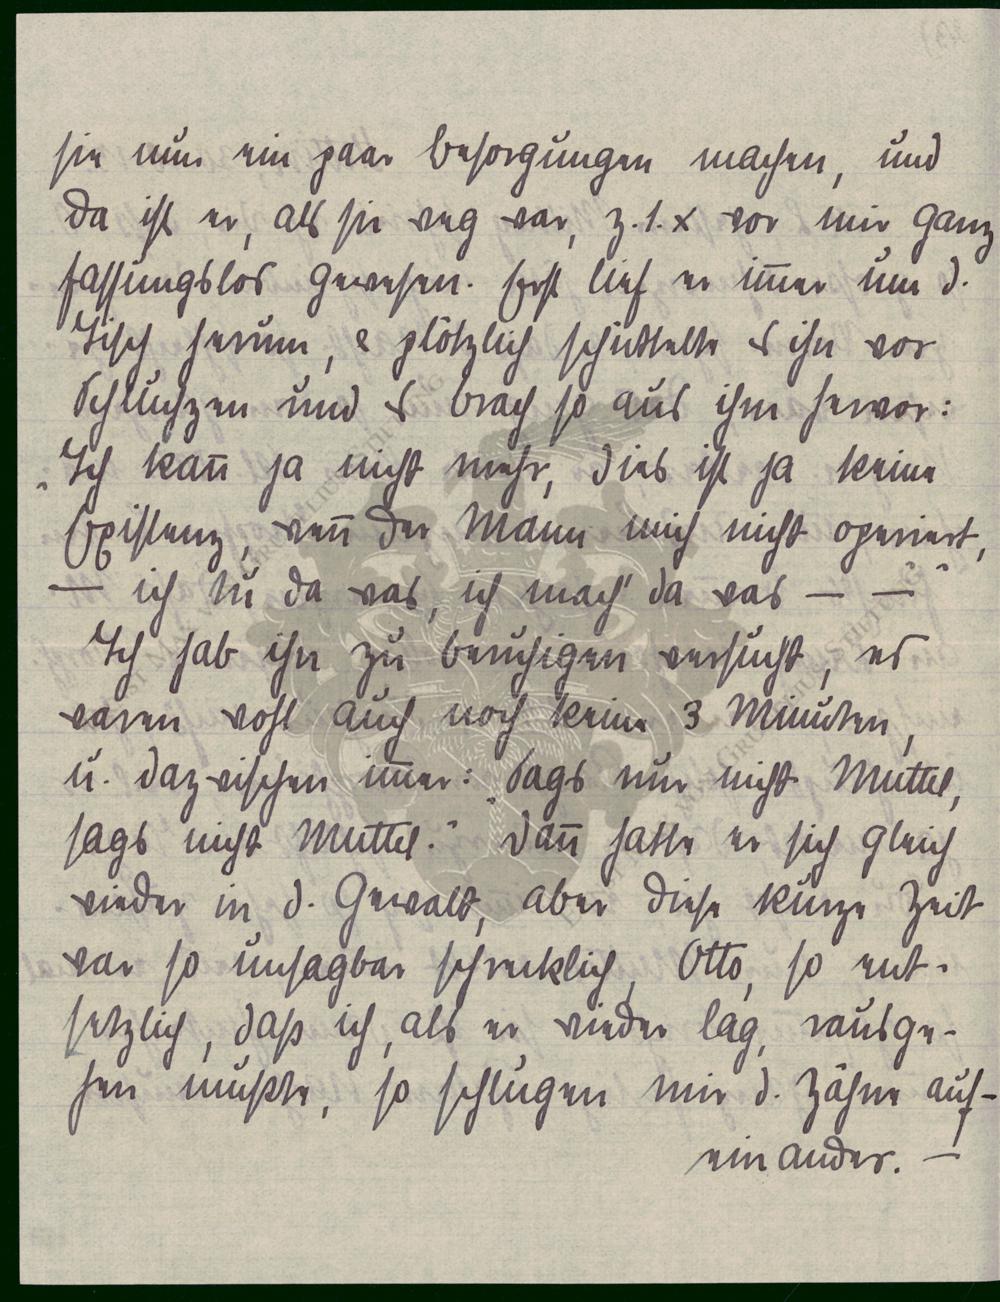 sie nur ein paar Besorgungen machen, und
da ist er, als sie weg war, z. 1. x vor mir ganz
fassungslos gewesen. Erst lief er im̄er um d.
Tisch herum, & plötzlich schüttelte es ihn vor
Schluchzen und es brach so aus ihm hervor:
„Ich kan̄ ja nicht mehr, dies ist ja keine
Existenz, wen̄ der Mann mich nicht operiert,
— ich tu da was, ich mach' da was — —"
Ich hab ihn zu beruhigen versucht, es
waren wohl auch noch keine 3 Minuten,
u. dazwischen im̄er: „Sags nur nicht Muttel,
sags nicht Muttel." Dan̄ hatte er sich gleich
wieder in d. Gewalt, aber diese kurze Zeit
war so unsagbar schrecklich, Otto, so ent-
setzlich, daß ich, als er wieder lag, rausge-
hen mußte, so schlugen mir d. Zähne auf-
einander. —